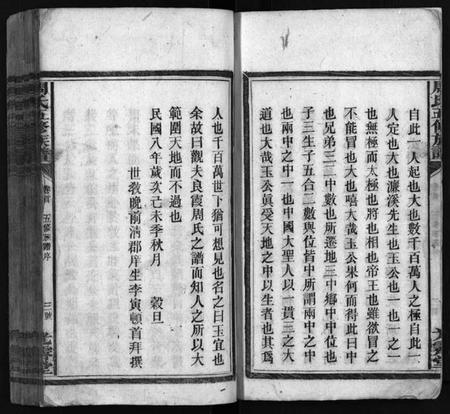 自此一人起也大也數千百萬人之極自此一
人定也大也濂溪先生也玉公也一也一之一
也無極而太極也將也相也帝王也雖欲冒之
不能冒也大也嘻大哉玉公果何而得此曰中
也兄弟三二中數也所遷地三中鄉中中位也
子三生子五合二數與位皆中所謂兩中之中
也兩中之中一也中國大聖人以一貫三之大
道也大哉玉公眞受天地之中以生者也其爲
人也千百萬世下猶可想見也名之曰玉宜也
余故曰觀夫良霞周氏之譜而知人之所以大
範圍天地而不過也
民國八年歲次己未季秋月 穀旦
世教晚前淸郡庠生李寅頓首拜撰
周氏五修族譜
卷首 五修族譜序
三號